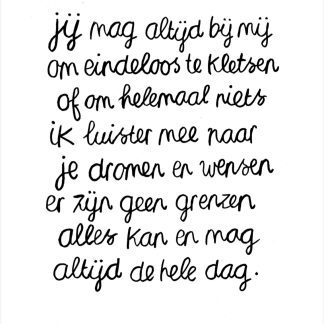 jij mag altijd bij mij
om eindeloos te kletsen
of om helemaal niets
ik luister mee naar
je dromen en wensen
er zijn geen grenzen
alles kan en mag
altijd de hele dag.